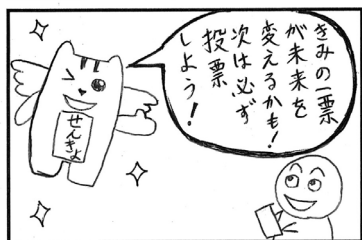 きみの一票
が未来を
変えるかも！
次は必ず
投票
しよう！
せんきょ